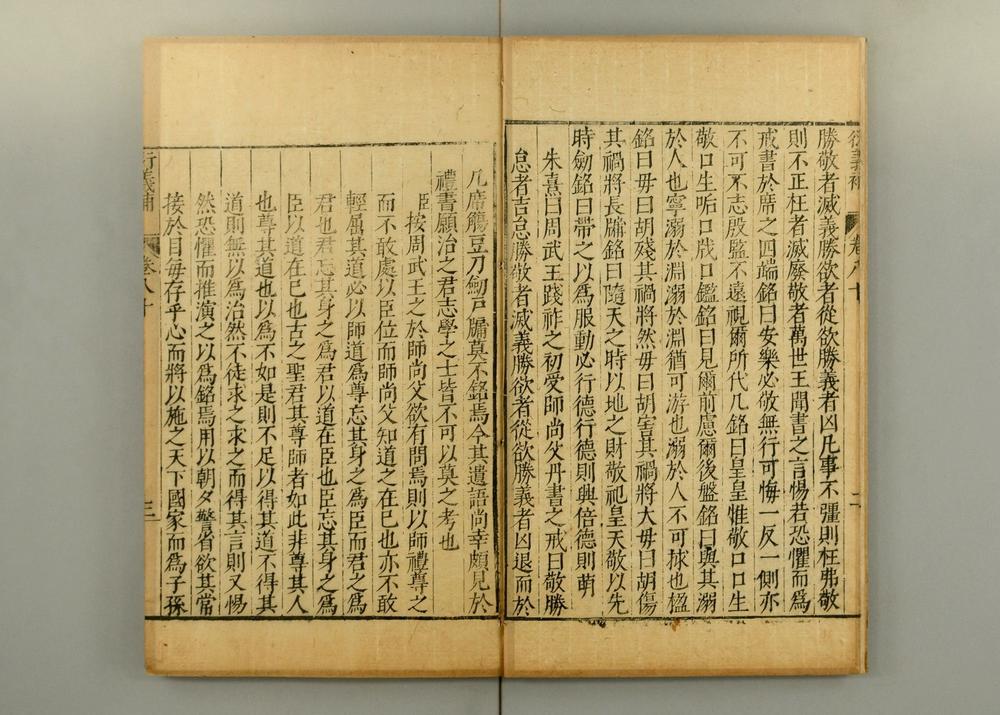 衍義補 卷八十 二
勝敬者滅義勝欲者從欲勝義者凶凡事不彊則枉弗敬
則不正枉者滅廢敬者萬世王聞書之言惕若恐懼而爲
戒書於席之四端銘曰安樂必敬無行可悔一反一側亦
不可不志殷監不遠視爾所代几銘曰皇皇惟敬口口生
敬口生㖃口戕口鑑銘曰見爾前慮爾後盤銘曰與其溺
於人也寧溺於淵溺於淵猶可游也溺於人不可捄也楹
銘曰毋曰胡殘其禍將然毋曰胡害其禍將大毋曰胡傷
其禍將長牖銘曰隨天之時以地之財敬祀皇天敬以先
時劒銘曰帶之以爲服動必行德行德則興倍德則萌
朱熹曰周武王踐祚之初受師尚父丹書之戒曰敬勝
怠者吉怠勝敬者滅義勝欲者從欲勝義者凶退而於
几席觴豆刀劒戸牖莫不銘焉今其遺語尚幸頗見於
禮書願治之君志學之士皆不可以莫之考也
臣按周武王之於師尚父欲有問焉則以師禮尊之
而不敢處以臣位而師尚父知道之在已也亦不敢
輕屈其道必以師道爲尊忘其身之爲臣而君之爲
君也君忘其身之爲君以道在臣也臣忘其身之爲
臣以道在已也古之聖君其尊師者如此非尊其人
也尊其道也以爲不如是則不足以得其道不得其
道則無以爲治然不徒求之求之而得其言則又惕
然恐懼而推演之以爲銘焉用以朝夕警省欲其常
接於目毎存乎心而將以施之天下國家而爲子孫
衍義補 卷八十 三